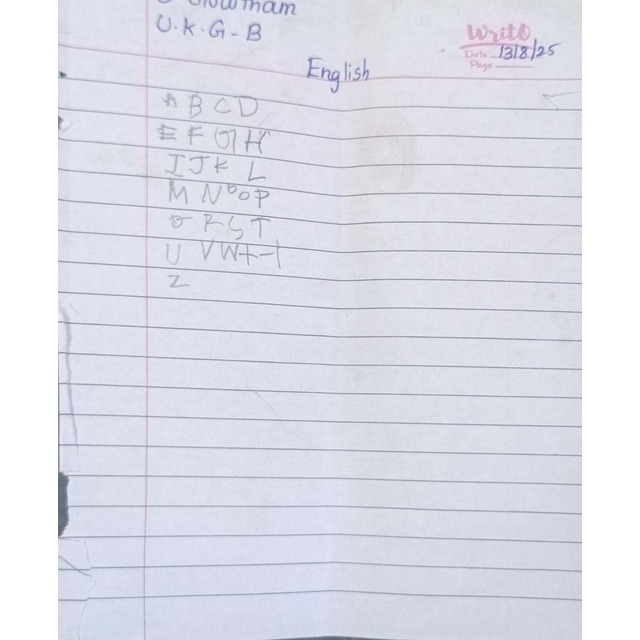 U.K.G-B
Write
Date 13/8/25
Page
English
A B C D
E F G H
I J K L
M N O P
R S T
U V W
Z